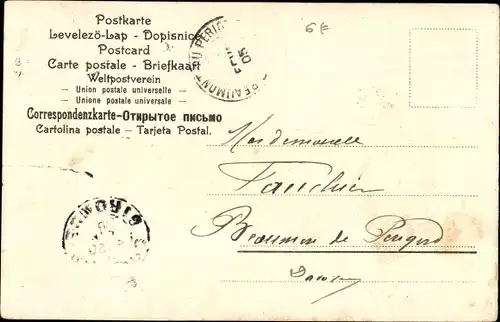 Postkarte
Levelezö-Lap - Dopisnice
Postcard
Carte postale - Briefkaart
Weltpostverein
— Union postale universelle —
— Unione postale universale —
Correspondenzkarte-Открытое письмо
Cartolina postale — Tarjeta Postal.
BEAUMONT DU PERIG
05
6E
Mademoiselle
Beaumon de Perigord